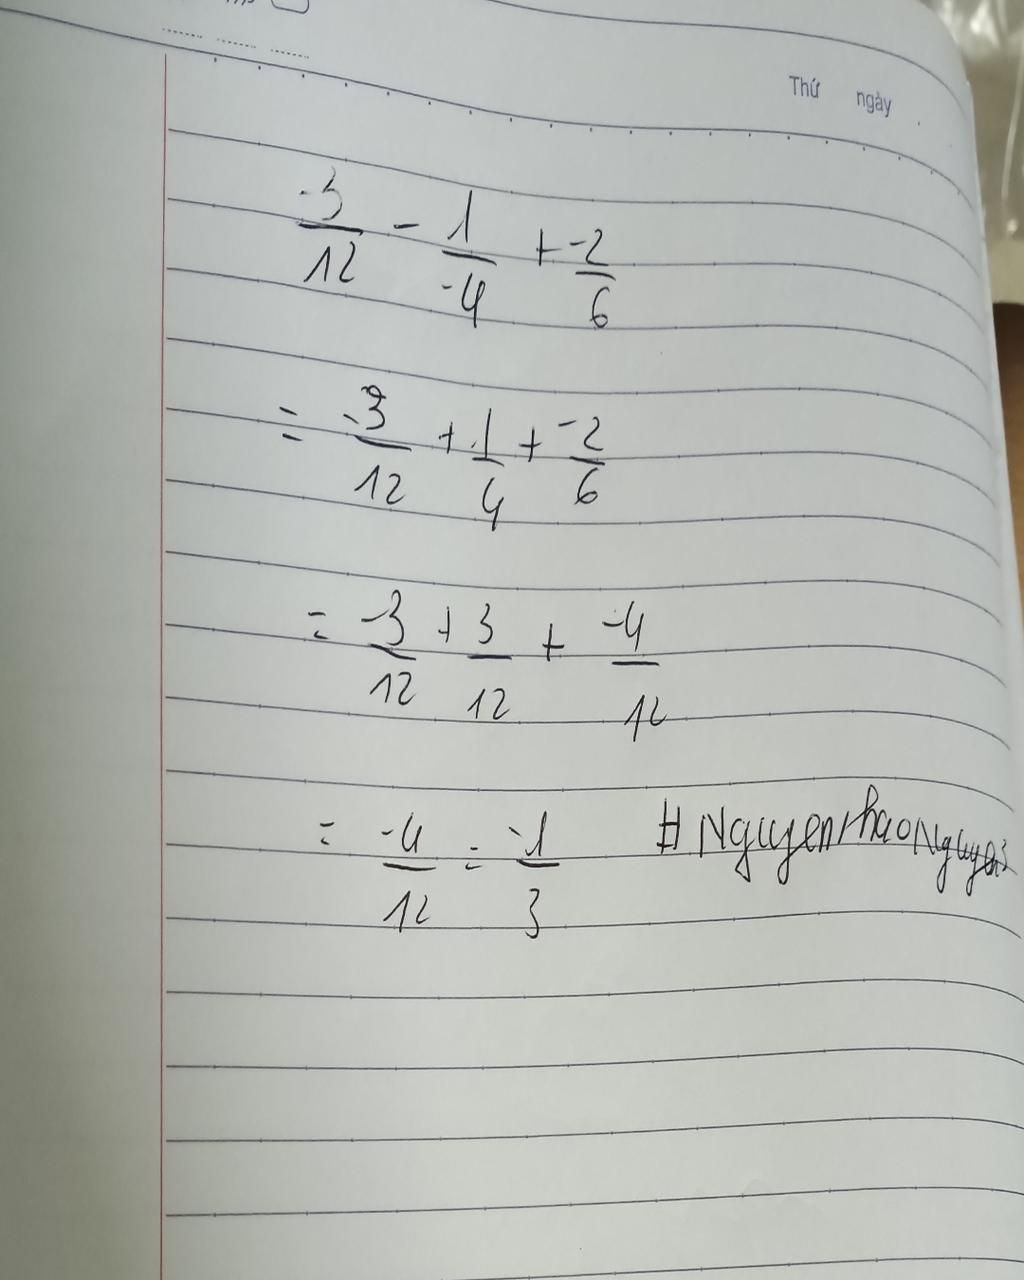 Thứ ngày
-3/12 - 1/-4 + -2/6
= -3/12 + 1/4 + -2/6
= -3/12 + 3/12 + -4/12
= -4/12 = -1/3 # NguyenthaoNguyen